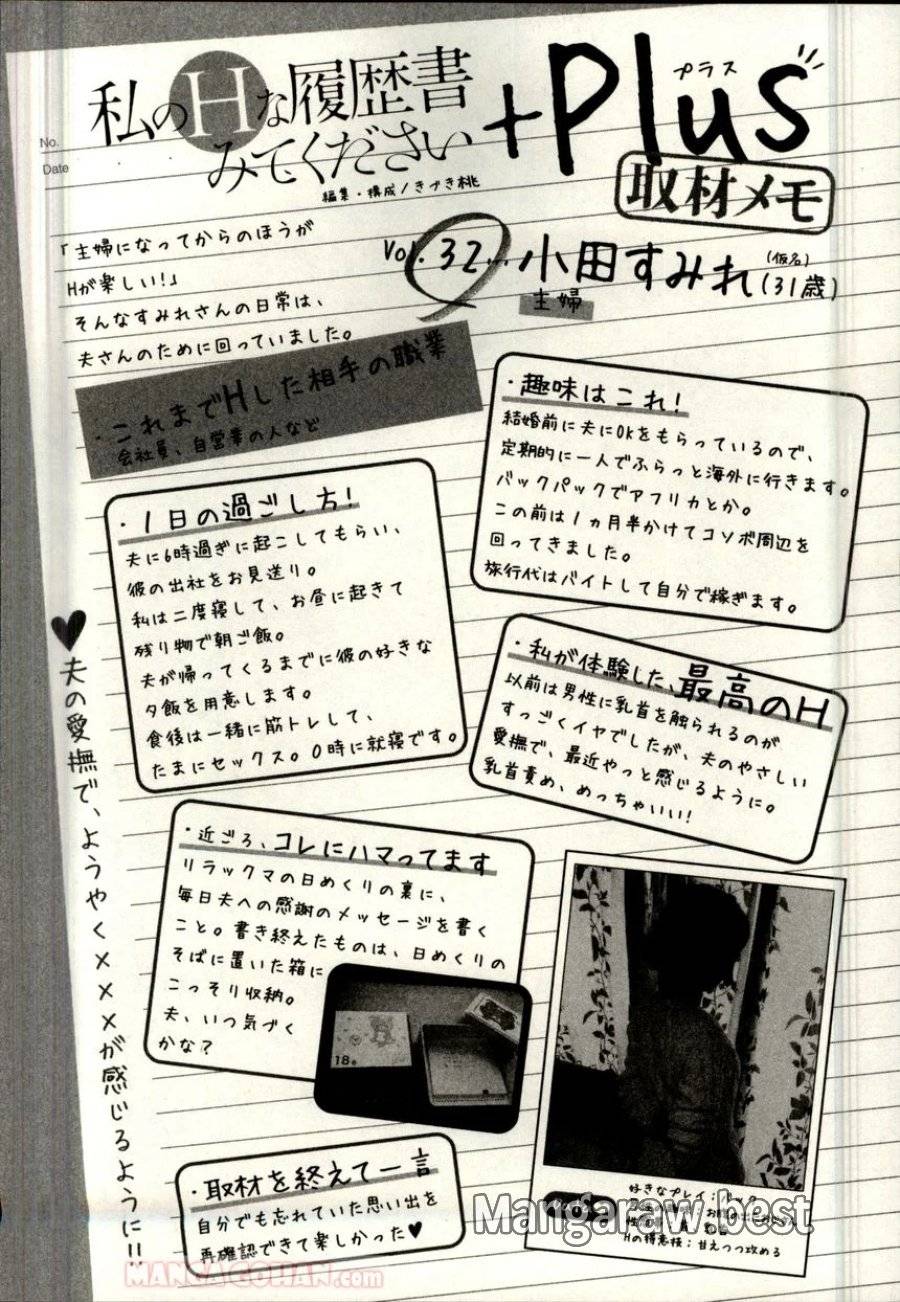 No.
Date
私のHな履歴書
みてください
+Plus
プラス
取材メモ
編集・構成/きづき桃
「主婦になってからのほうが
Hが楽しい!」
そんなすみれさんの日常は、
夫さんのために回っていました。
Vol.32...小田すみれ(31歳)
(仮名)
主婦
・これまでHした相手の職業
会社員、自営業の人など
・趣味はこれ!
結婚前に夫にOKをもらっているので、
定期的に一人でふらっと海外に行きます。
バックパックでアフリカとか。
この前は1ヵ月半かけてコソボ周辺を
回ってきました。
旅行代はバイトして自分で稼ぎます。
・1日の過ごし方!
夫に6時過ぎに起こしてもらい、
彼の出社をお見送り。
私は二度寝して、お昼に起きて
残り物で朝ご飯。
夫が帰ってくるまでに彼の好きな
夕飯を用意します。
食後は一緒に筋トレして、
たまにセックス。0時に就寝です。
・私が体験した、最高のH
以前は男性に乳首を触られるのが、
すっごくイヤでしたが、夫のやさしい
愛撫で、最近やっと感じるように。
乳首責め、めっちゃいい!
♥夫の愛撫で、ようやく×××が感じるように!!
・近ごろ、コレにハマってます
リラックマの日めくりの裏に、
毎日夫への感謝のメッセージを書く
こと。書き終えたものは、日めくりの
そばに置いた箱に
こっそり収納。
夫、いつ気づく
かな?
18
・取材を終えて一言
自分でも忘れていた思い出を
再確認できて楽しかった♥
好きなプレイ:バック
Hの得意技:甘えつつ攻める
Mangaraw.best
MANGAGOHAN.com